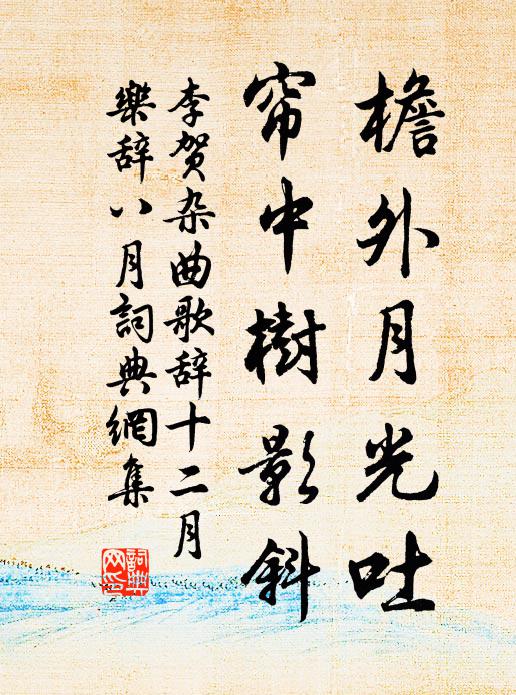 檐外月光吐
帘中樹影斜
李贺杂曲歌辞十二月
樂辞八月詞典網集